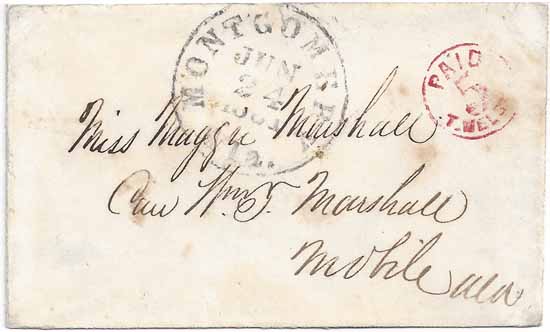 MONTGOMERY
JUN
24
1861
Ala.
PAID
5
T. WELSH
Miss Maggie Marshall
Care Wm. T. Marshall
Mobile Ala